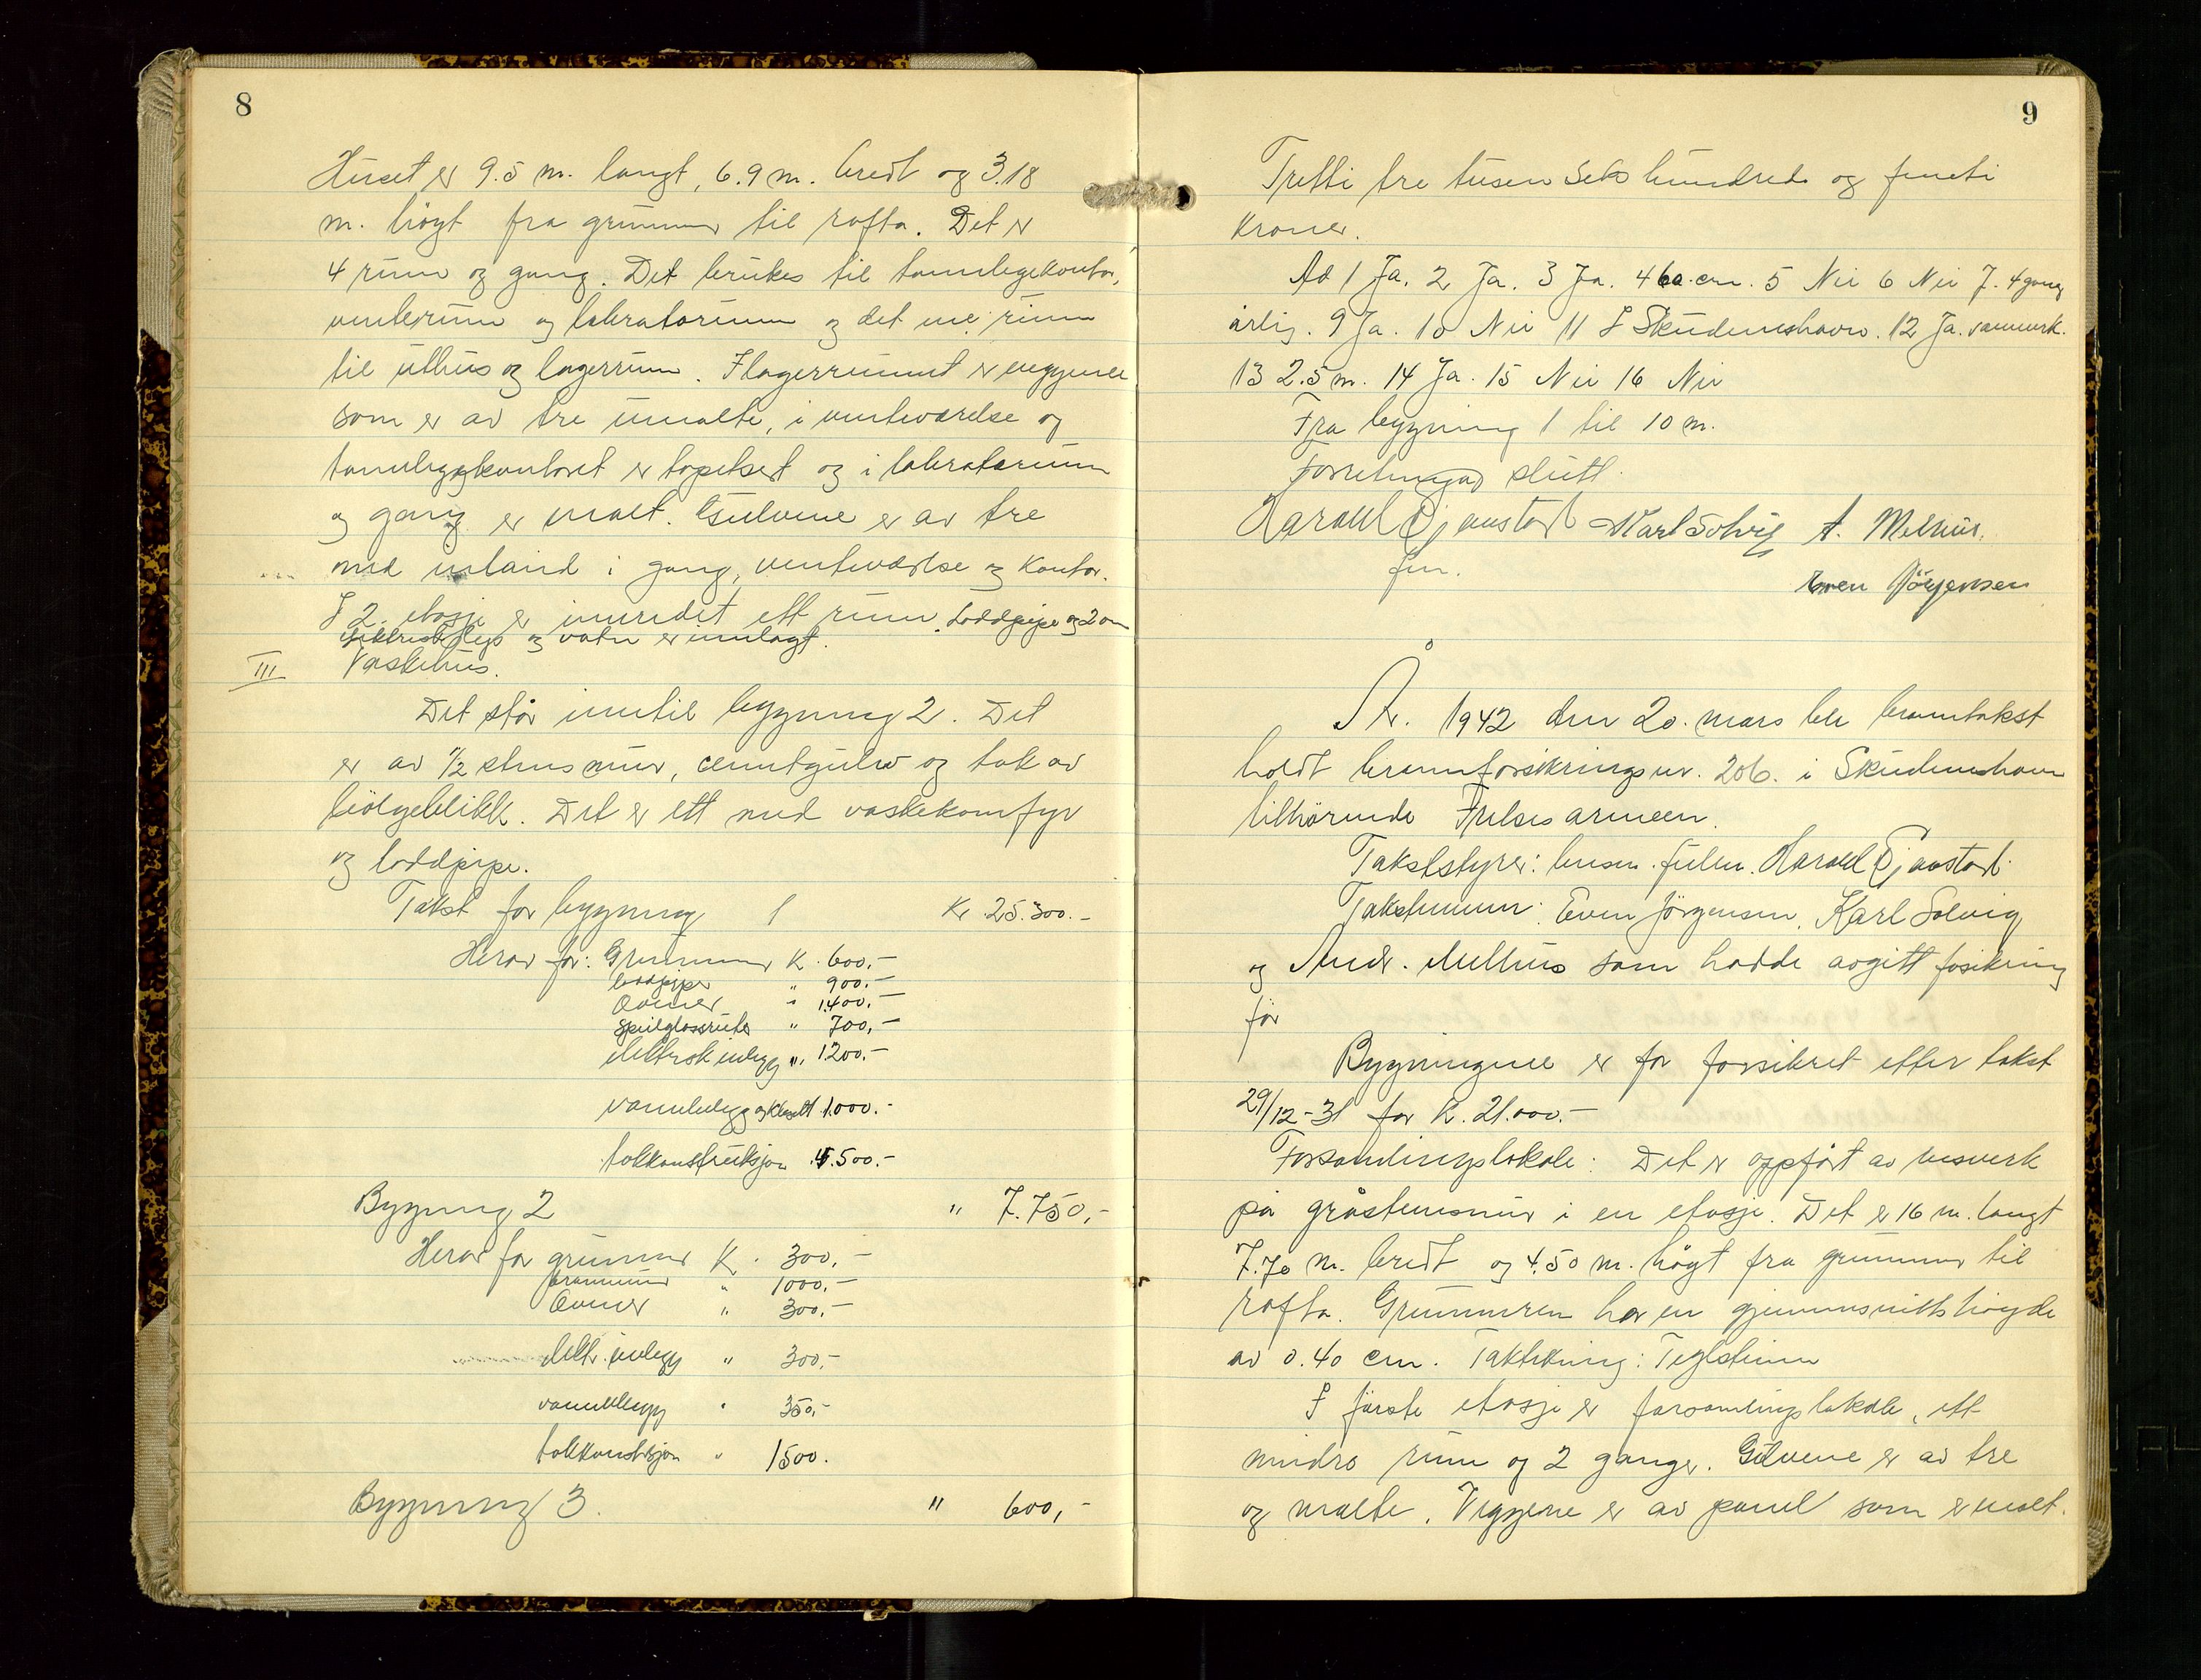 8
Huset er 9.5 m. langt, 6.9 m. bredt og 3.18
m. högt fra grunnmur til rafta. Det er
4 rum og gang. Det brukes til tannlegekontor,
venterum og labratorium og det ene rum
til uthus og lagerrum. I lagerrumet er veggene
som er av tre umalte, i venteværelse og
tannlegekontoret er tapetsert og i labratorium
og gang er malt. Gulvene er av tre
med inlaid i gang, venteværelse og kontor.
I 2. etasje er innredet ett rum. Loddpipe og 2 ovn
Elektrisk lys og vatn er innlagt.
III Vaskehus.
Det står inntil bygning 2. Det
er av 1/2 stens mur, cementgulv og tak av
bölgeblikk. Det er ett med vaskekomfyr
og loddpipe.
Takst for bygning 1 Kr 25.300.-
Herav for: Grunnmur K. 600,-
loddpiper " 900.-
Ovner " 1.400.-
Speilglassruter " 700,-
elektrisk innlegg " 1200.-
vanninlegg og klosett 1.000.-
takkonstruksjon 4.500.-
Bygning 2 " 7.750,-
Herav for grunnmur K. 300,-
brannmur " 1000,-
Ovner " 300,-
elektr. inlegg " 300,-
vanninlegg " 350,-
takkonstrksjon " 1500.
Bygning 3. " 600,-
9
Tretti tre tusen seks hundrede og femti
Kroner.
Ad 1 Ja. 2 Ja. 3 Ja. 4 60.cm. 5 Nei 6 Nei 7. 4 gang
årlig. 9 Ja. 10 Nei 11 I Skudeneshavn. 12 Ja. vannverk.
13 2.5 m. 14 Ja. 15 Nei 16 Nei
Fra bygning 1 til 10 m.
Forretningen slutt.
Harald Karl Solvig A. Melhus.
fm.
Even Jörgensen
År. 1942 den 20. mars ble branntakst
holdt brannforsikringsnr. 206. i Skudeneshavn
tilhörende Frelsesarmeen.
Takststyrer: lensm. fullm. Harald
Takstmenn: Even Jörgensen, Karl Solvig
og Andr. Melhus som hadde avgitt forsikring
för
Bygningene er för forsikret etter takst
29/12-31 for K. 21.000.-
Forsamlingslokale: Det er oppfört av
på gråstensmur i en etasje. Det er 16 m. langt
7.70 m. bredt og 4.50 m. högt fra grunnmur til
rafta. Grunnmuren har en gjennomsnittshöyde
av 0.40 cm. Taktekning: Teglstein
I förste etasje er forsamlingslokale, ett
mindre rum og 2 ganger. Gulvene er av tre
og malte. Veggene er av panel som er malt.